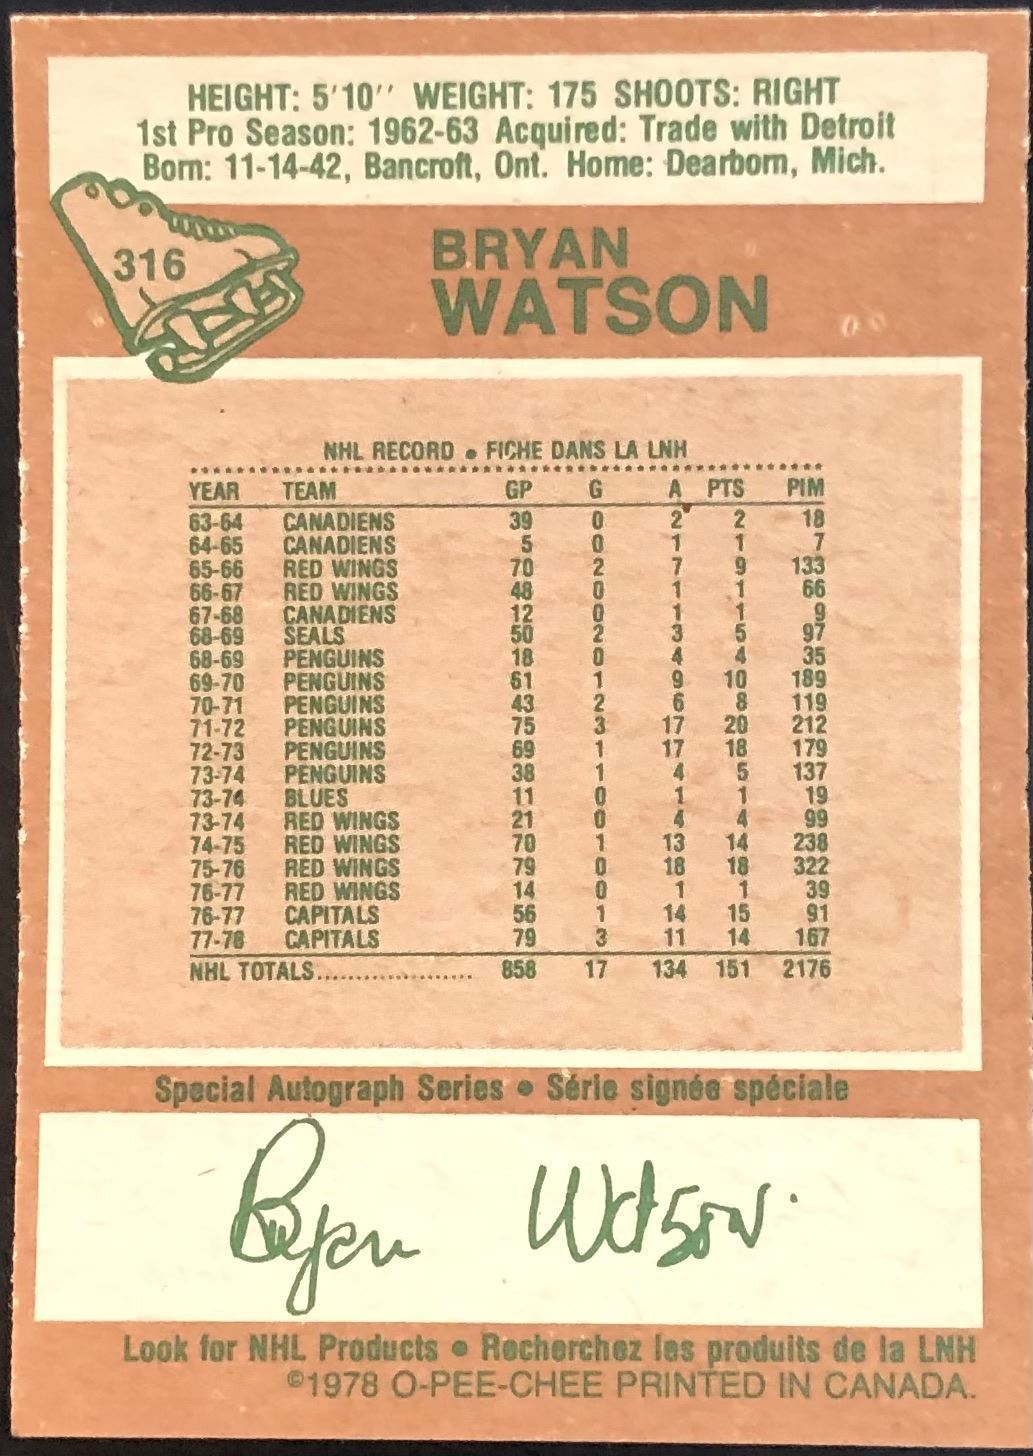 HEIGHT: 5'10'' WEIGHT: 175 SHOOTS: RIGHT
1st Pro Season: 1962-63 Acquired: Trade with Detroit
Born: 11-14-42, Bancroft, Ont. Home: Dearborn, Mich.
316
BRYAN
WATSON
NHL RECORD • FICHE DANS LA LNH
YEAR TEAM GP G A PTS PIM
63-64 CANADIENS 39 0 2 2 18
64-65 CANADIENS 5 0 1 1 7
65-66 RED WINGS 70 2 7 9 133
66-67 RED WINGS 48 0 1 1 66
67-68 CANADIENS 12 0 1 1 9
68-69 SEALS 50 2 3 5 97
68-69 PENGUINS 18 0 4 4 35
69-70 PENGUINS 61 1 9 10 189
70-71 PENGUINS 43 2 6 8 119
71-72 PENGUINS 75 3 17 20 212
72-73 PENGUINS 69 1 17 18 179
73-74 PENGUINS 38 1 4 5 137
73-74 BLUES 11 0 1 1 19
73-74 RED WINGS 21 0 4 4 99
74-75 RED WINGS 70 1 13 14 238
75-76 RED WINGS 79 0 18 18 322
76-77 RED WINGS 14 0 1 1 39
76-77 CAPITALS 56 1 14 15 91
77-78 CAPITALS 79 3 11 14 167
NHL TOTALS..................... 858 17 134 151 2176
Special Autograph Series • Série signée spéciale
Bryan Watson
Look for NHL Products • Recherchez les produits de la LNH
©1978 O-PEE-CHEE PRINTED IN CANADA.